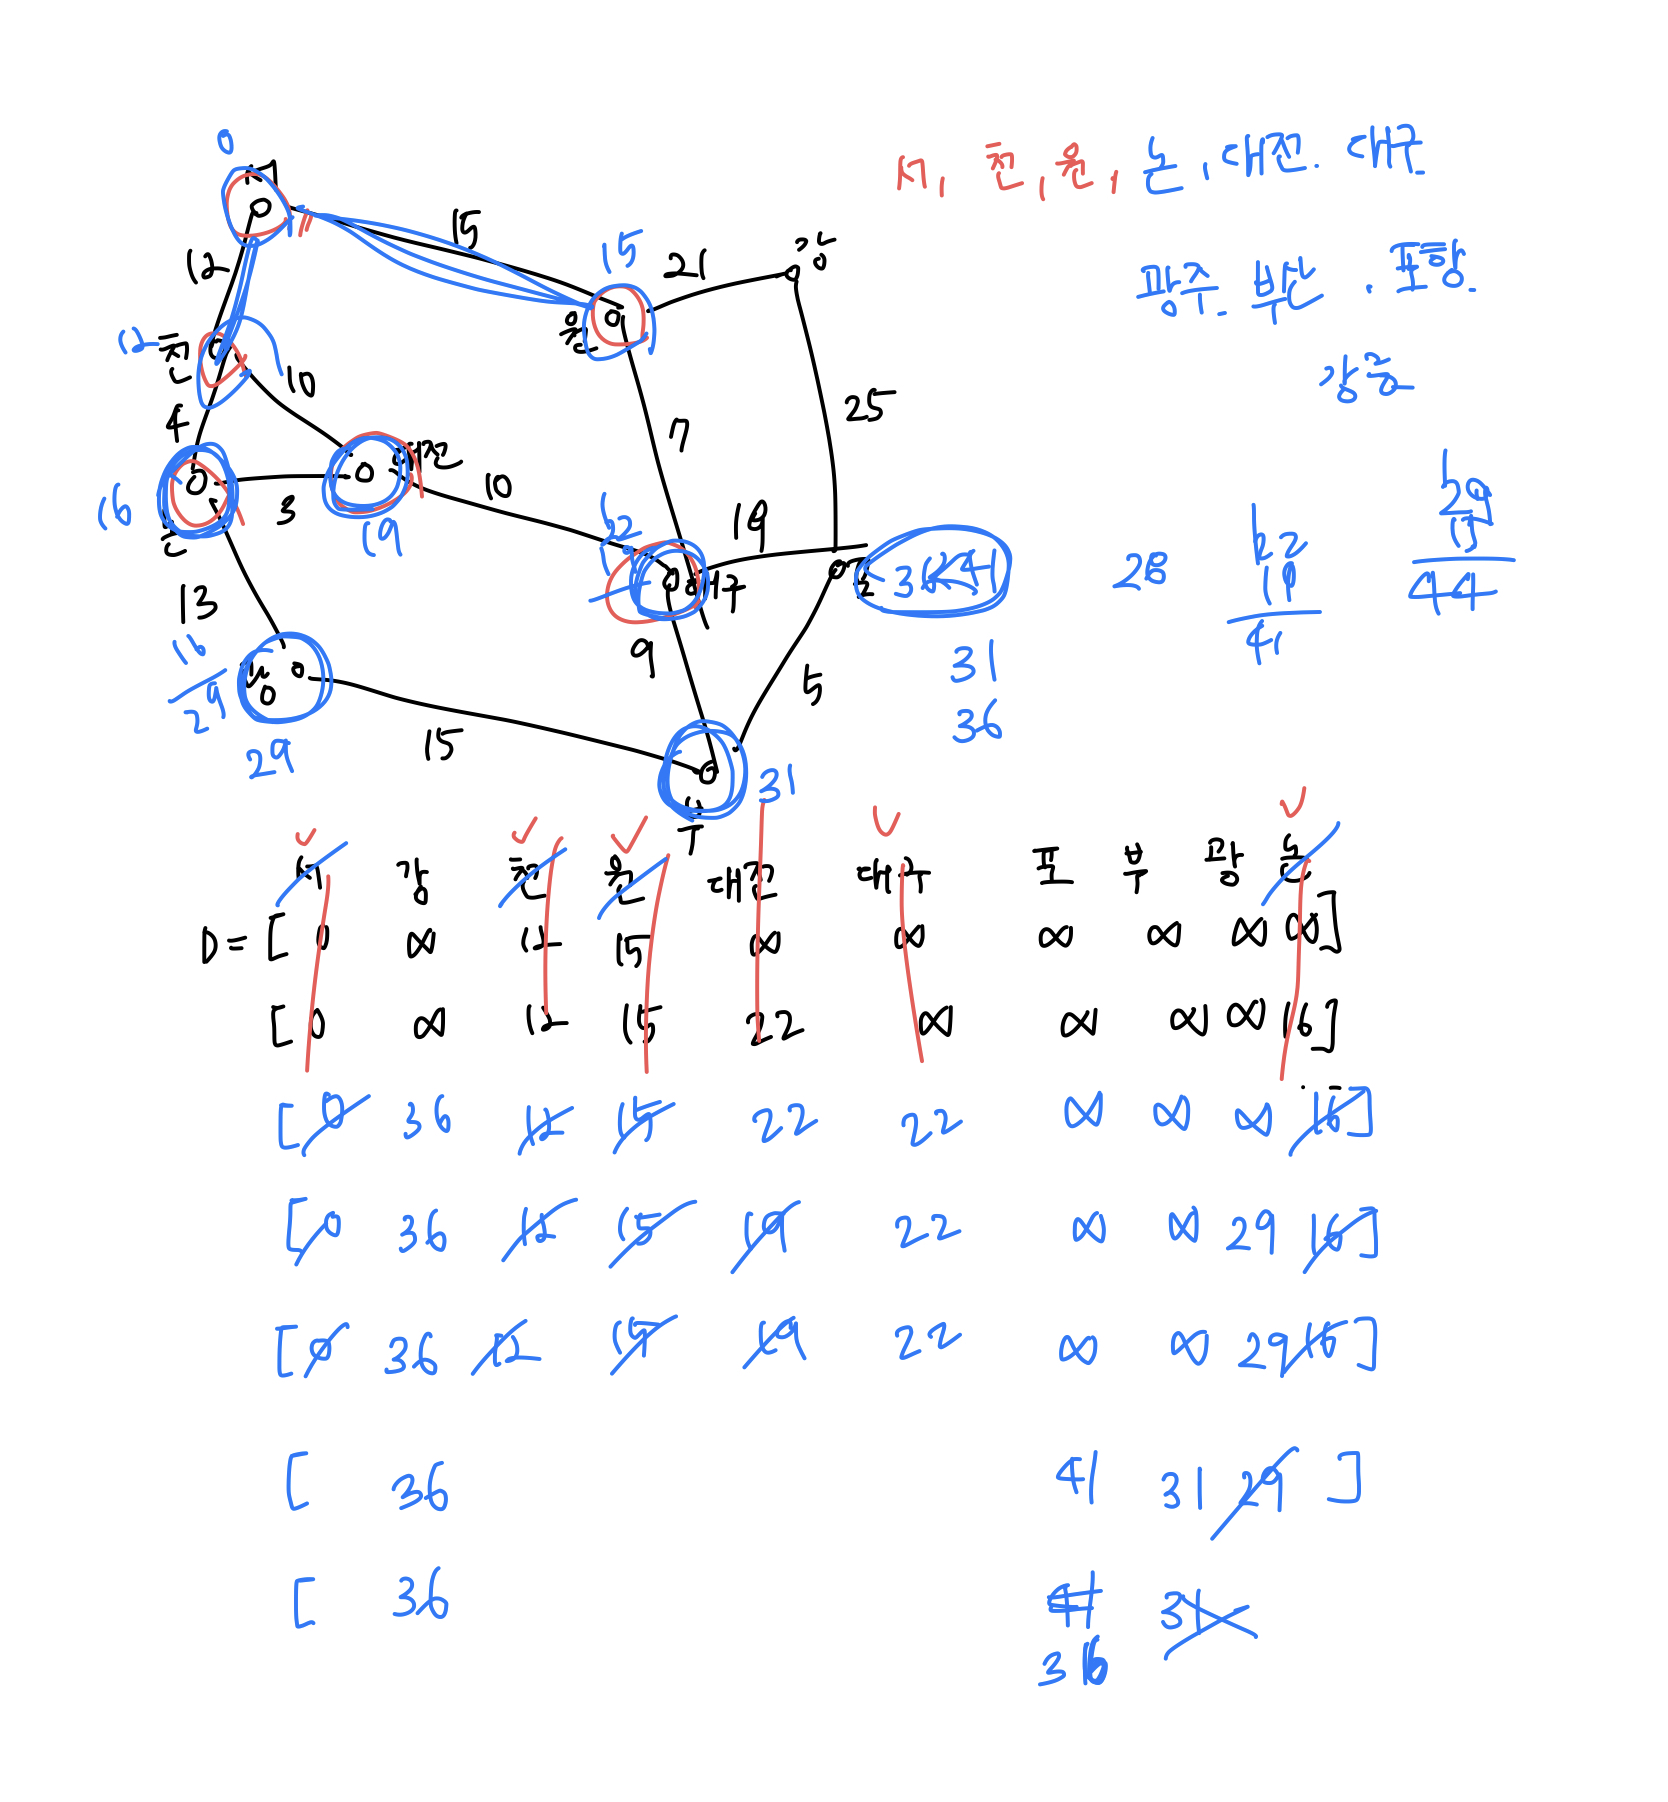 0
서
서, 천, 원, 논, 대전. 대구
15
12
15
21
강
광주. 부산. 포항.
원
12 천
10
강릉
4
25
7
대전
16
3
10
19
논
19
22
28
22
19
41
29
15
44
대구
포
36<41
13
9
31
16
29
광
5
36
29
15
31
부
서 강 천 원 대전 대구 포 부 광 논
D = [ 0 ∞ 12 15 ∞ ∞ ∞ ∞ ∞ ∞ ]
[ 0 ∞ 12 15 22 ∞ ∞ ∞ ∞ 16 ]
[ 0 36 12 15 22 22 ∞ ∞ ∞ 16 ]
[ 0 36 12 15 19 22 ∞ ∞ 29 16 ]
[ 0 36 12 15 19 22 ∞ ∞ 29 16 ]
[ 36 41 31 29 ]
[ 36 41 31
36